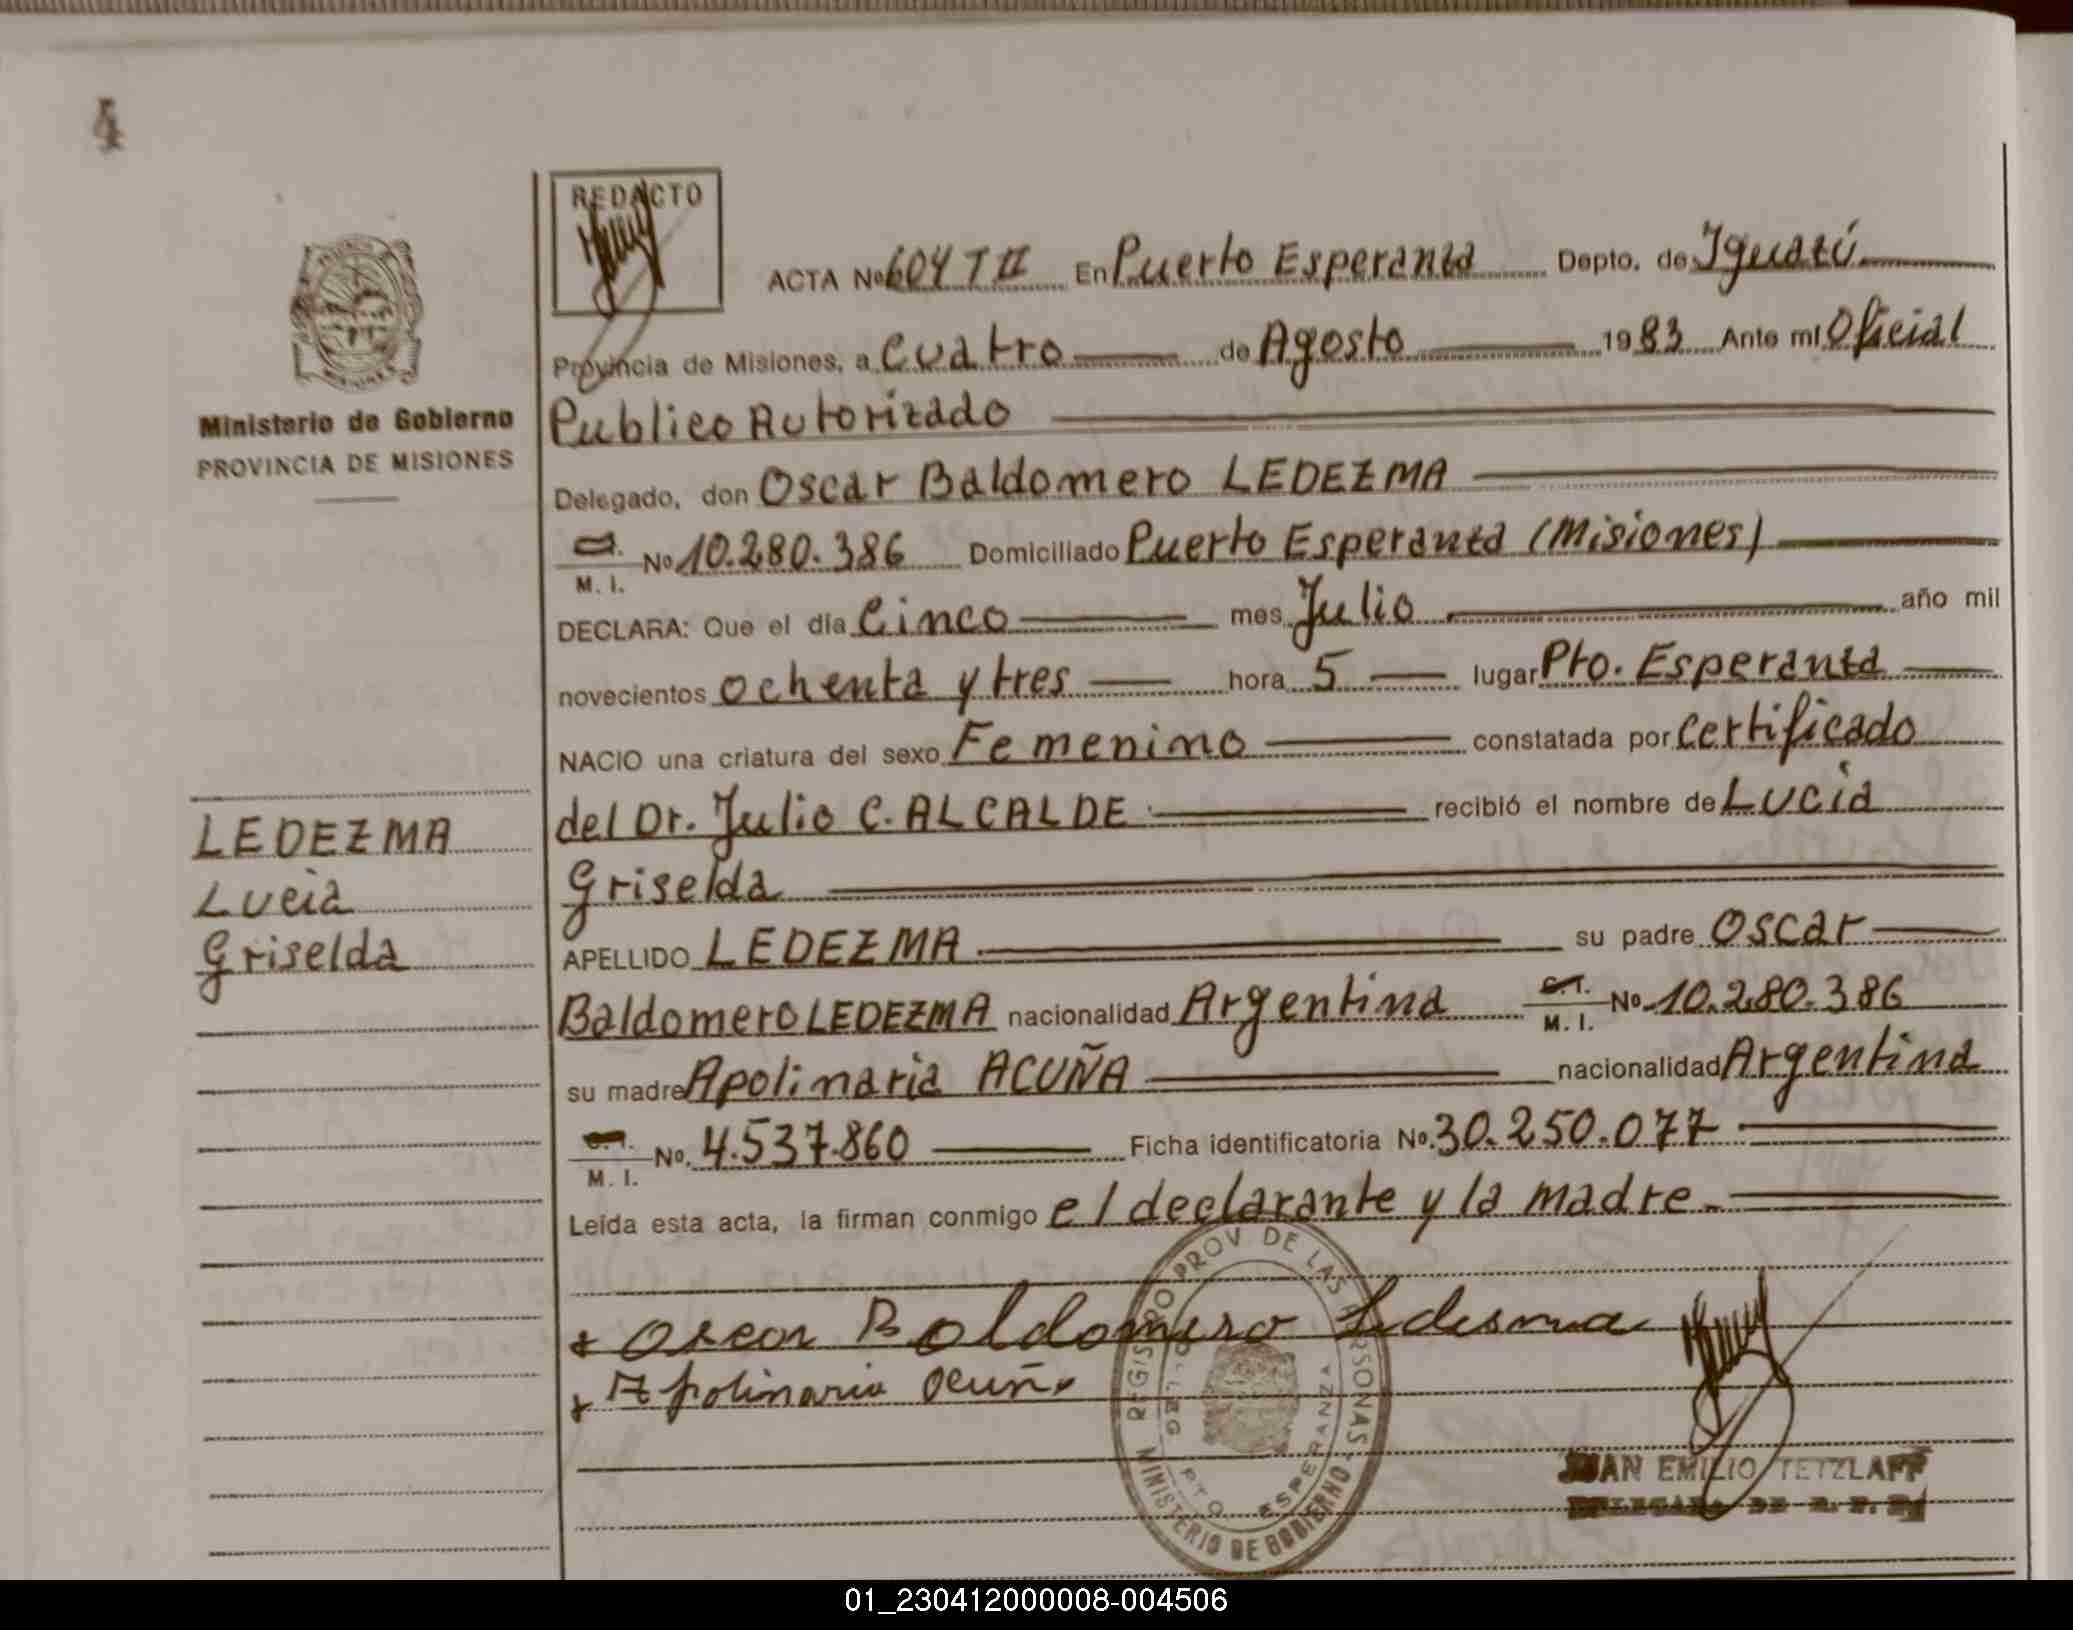 4
REDACTO
ACTA Nº 604 T II En Puerto Esperanza Depto. de Iguazú
Provincia de Misiones, a Cuatro de Agosto 1983 Ante mí Oficial
Publico Autorizado
Ministerio de Gobierno
PROVINCIA DE MISIONES
Delegado, don Oscar Baldomero LEDEZMA
M. I. Nº 10.280.386 Domiciliado Puerto Esperanza (Misiones)
DECLARA: Que el día Cinco mes Julio año mil
novecientos ochenta y tres hora 5 lugar Pto. Esperanza
NACIO una criatura del sexo Femenino constatada por certificado
del Dr. Julio C. ALCALDE recibió el nombre de Lucia
Griselda
LEDEZMA
Lucia
Griselda
APELLIDO LEDEZMA su padre Oscar
Baldomero LEDEZMA nacionalidad Argentina C.I. M. I. Nº 10.280.386
su madre Apolinaria ACUÑA nacionalidad Argentina
C.I. M. I. Nº. 4.537.860 Ficha identificatoria Nº. 30.250.077
Leída esta acta, la firman conmigo el declarante y la madre.-
+ Oscar Boldomero Ledesma
+ Apolinaria Acuña
REGISTRO PROV DE LAS PERSONAS
MINISTERIO DE GOBIERNO
DELEG. PTO. ESPERANZA
JUAN EMILIO TETZLAFF
DELEGADO DE R. P. P.
01_230412000008-004506